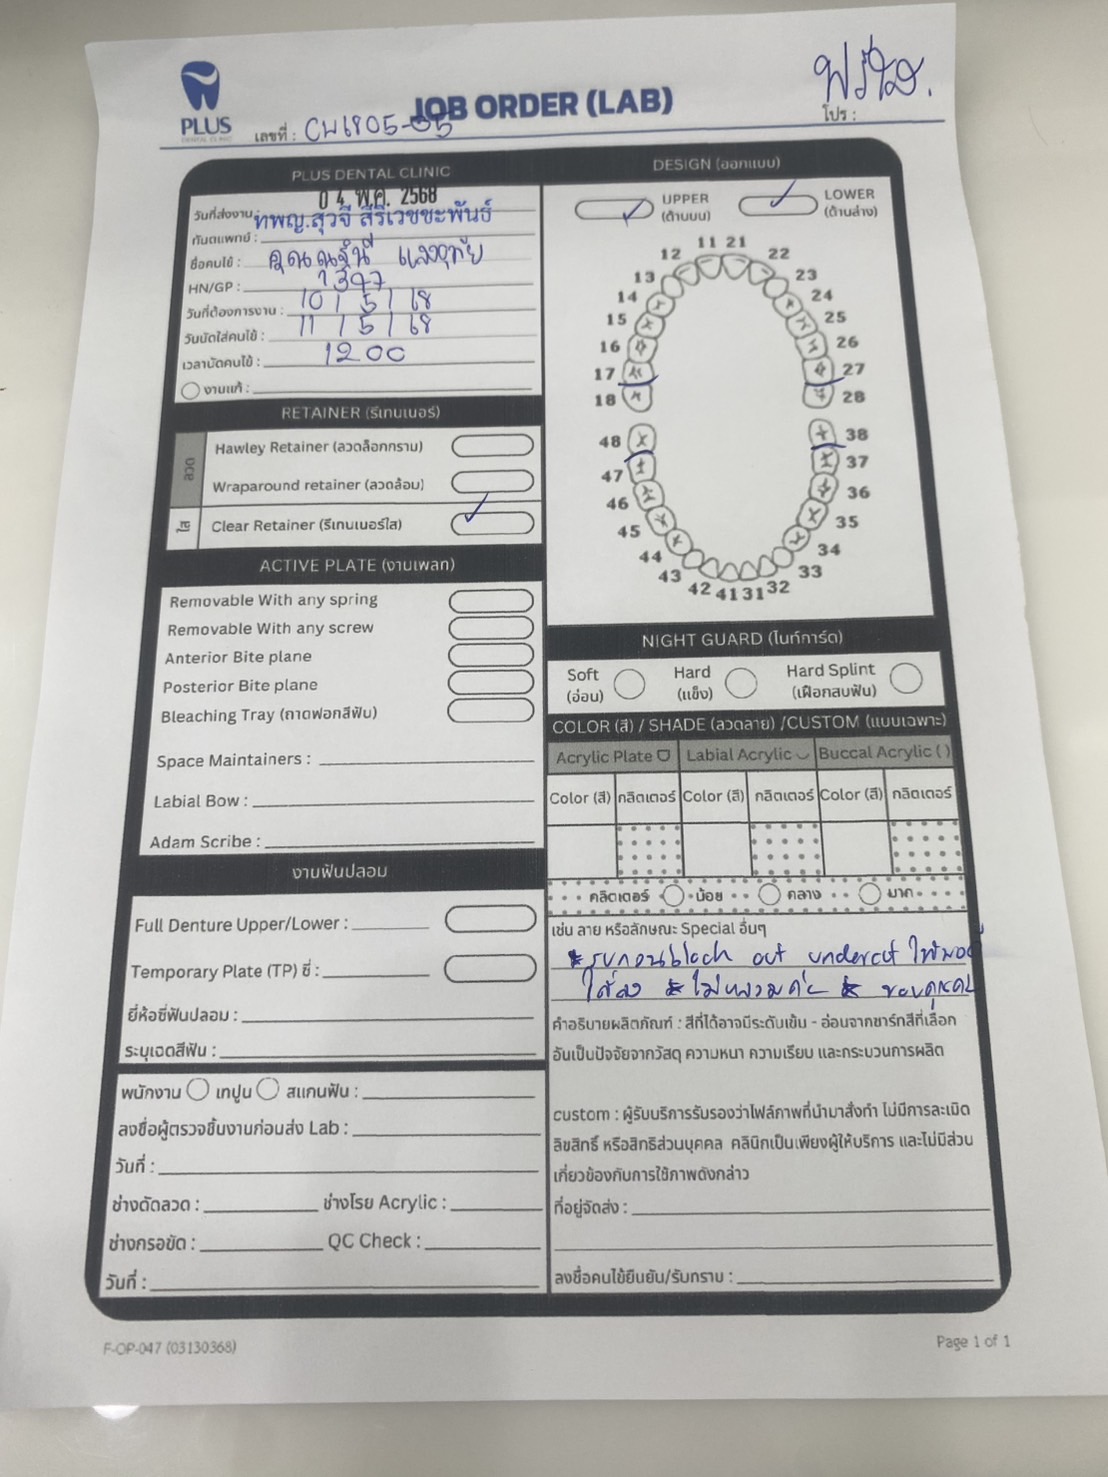 PLUS
DENTAL CLINIC
JOB ORDER (LAB)
โปร :
เลขที่ : CW6805-05
PLUS DENTAL CLINIC
วันที่ส่งงาน : 0 4 พ.ค. 2568
ทันตแพทย์ : ทพญ.สุวจี สิริเวชชะพันธ์
ชื่อคนไข้ : คุณ
HN/GP : 1397
วันที่ต้องการงาน : 10 / 5 / 68
วันนัดใส่คนไข้ : 11 / 5 / 68
เวลานัดคนไข้ : 12 00
งานแก้ :
RETAINER (รีเทนเนอร์)
ลวด
Hawley Retainer (ลวดล็อกกราม)
Wraparound retainer (ลวดล้อม)
ใส
Clear Retainer (รีเทนเนอร์ใส)
ACTIVE PLATE (งานเพลท)
Removable With any spring
Removable With any screw
Anterior Bite plane
Posterior Bite plane
Bleaching Tray (ถาดฟอกสีฟัน)
Space Maintainers :
Labial Bow :
Adam Scribe :
งานฟันปลอม
Full Denture Upper/Lower :
Temporary Plate (TP) ซี่ :
ยี่ห้อซี่ฟันปลอม :
ระบุเฉดสีฟัน :
พนักงาน เทปูน สแกนฟัน :
ลงชื่อผู้ตรวจชิ้นงานก่อนส่ง Lab :
วันที่ :
ช่างดัดลวด : ช่างโรย Acrylic :
ช่างกรอขัด : QC Check :
วันที่ :
DESIGN (ออกแบบ)
UPPER
(ด้านบน)
LOWER
(ด้านล่าง)
11 21
12 22
13 23
14 24
15 25
16 26
17 27
18 28
48 38
47 37
46 36
45 35
44 34
43 33
42 41 31 32
NIGHT GUARD (ไนท์การ์ด)
Soft
(อ่อน)
Hard
(แข็ง)
Hard Splint
(เฝือกสบฟัน)
COLOR (สี) / SHADE (ลวดลาย) /CUSTOM (แบบเฉพาะ)
Acrylic Plate Labial Acrylic Buccal Acrylic ( )
Color (สี) กลิตเตอร์ Color (สี) กลิตเตอร์ Color (สี) กลิตเตอร์
กลิตเตอร์ น้อย กลาง มาก
เช่น ลาย หรือลักษณะ Special อื่นๆ
* รบกวน block out undercut ให้พอดี
ใส่ลง * ไม่หลวมค่ะ * ขอบคุณค่ะ
คำอธิบายผลิตภัณฑ์ : สีที่ได้อาจมีระดับเข้ม - อ่อนจากชาร์ทสีที่เลือก
อันเป็นปัจจัยจากวัสดุ ความหนา ความเรียบ และกระบวนการผลิต
custom : ผู้รับบริการรับรองว่าไฟล์ภาพที่นำมาสั่งทำ ไม่มีการละเมิด
ลิขสิทธิ์ หรือสิทธิส่วนบุคคล คลินิกเป็นเพียงผู้ให้บริการ และไม่มีส่วน
เกี่ยวข้องกับการใช้ภาพดังกล่าว
ที่อยู่จัดส่ง :
ลงชื่อคนไข้ยืนยัน/รับทราบ :
F-OP-047 (03130368)
Page 1 of 1